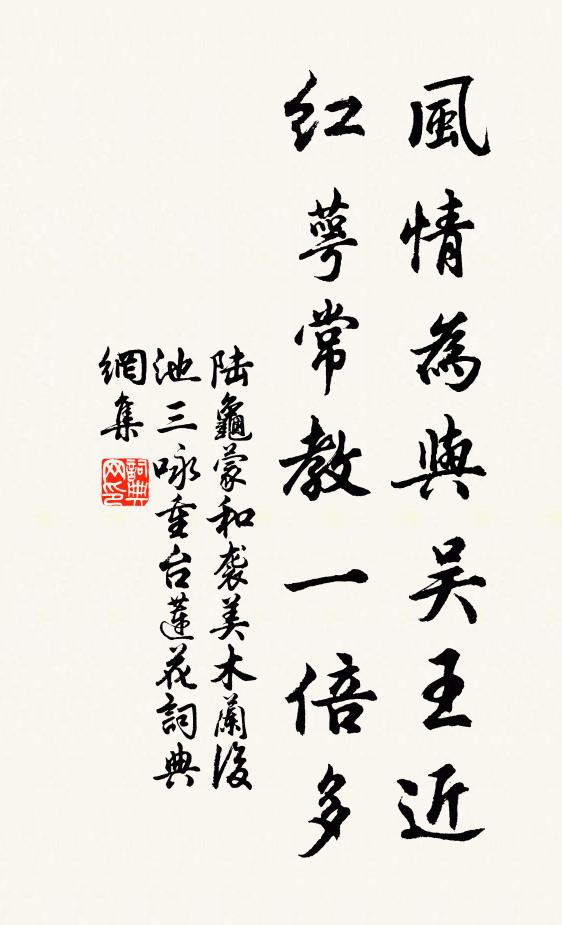 風情為與吴王近
紅萼常教一倍多
陆龜蒙和袭美木蘭後
池三咏重台蓮花詞典
網集
詞典
网印